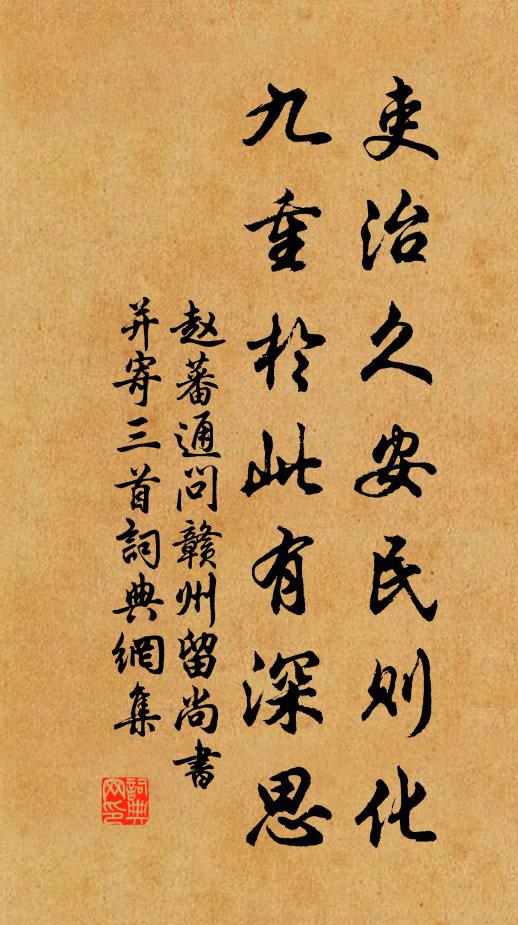 吏治久安民则化
九重於此有深思
赵蕃通问贛州留尚書
并寄三首詞典網集
詞典
网印